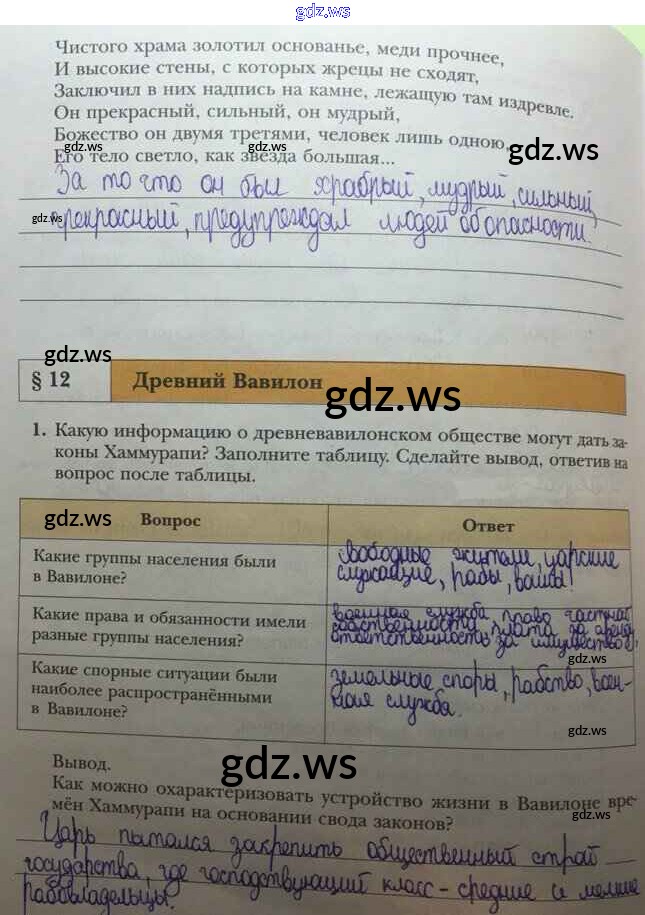 gdz.ws
Чистого храма золотил основанье, меди прочнее,
И высокие стены, с которых жрецы не сходят,
Заключил в них надпись на камне, лежащую там издревле.
Он прекрасный, сильный, он мудрый,
Божество он двумя третями, человек лишь одною,
gdz.ws gdz.ws
Его тело светло, как звезда большая...
За то что он был храбрый, мудрый, сильный,
gdz.ws
прекрасный, предупреждал людей об опасности.
gdz.ws
§ 12 Древний Вавилон
gdz.ws
1. Какую информацию о древневавилонском обществе могут дать за-
коны Хаммурапи? Заполните таблицу. Сделайте вывод, ответив на
вопрос после таблицы.
gdz.ws
Вопрос Ответ
Какие группы населения были
в Вавилоне?
свободные жители, царские
служащие, рабы,
Какие права и обязанности имели
разные группы населения?
военная служба, право частной
собственности, плата за аренду,
ответственность за имущество
gdz.ws
Какие спорные ситуации были
наиболее распространёнными
в Вавилоне?
земельные споры, рабство, воен-
ная служба.
gdz.ws
gdz.ws
Вывод.
Как можно охарактеризовать устройство жизни в Вавилоне вре-
мён Хаммурапи на основании свода законов?
gdz.ws
Царь пытался закрепить общественный строй
государства, где господствующий класс - средние и мелкие
рабовладельцы.
gdz.ws